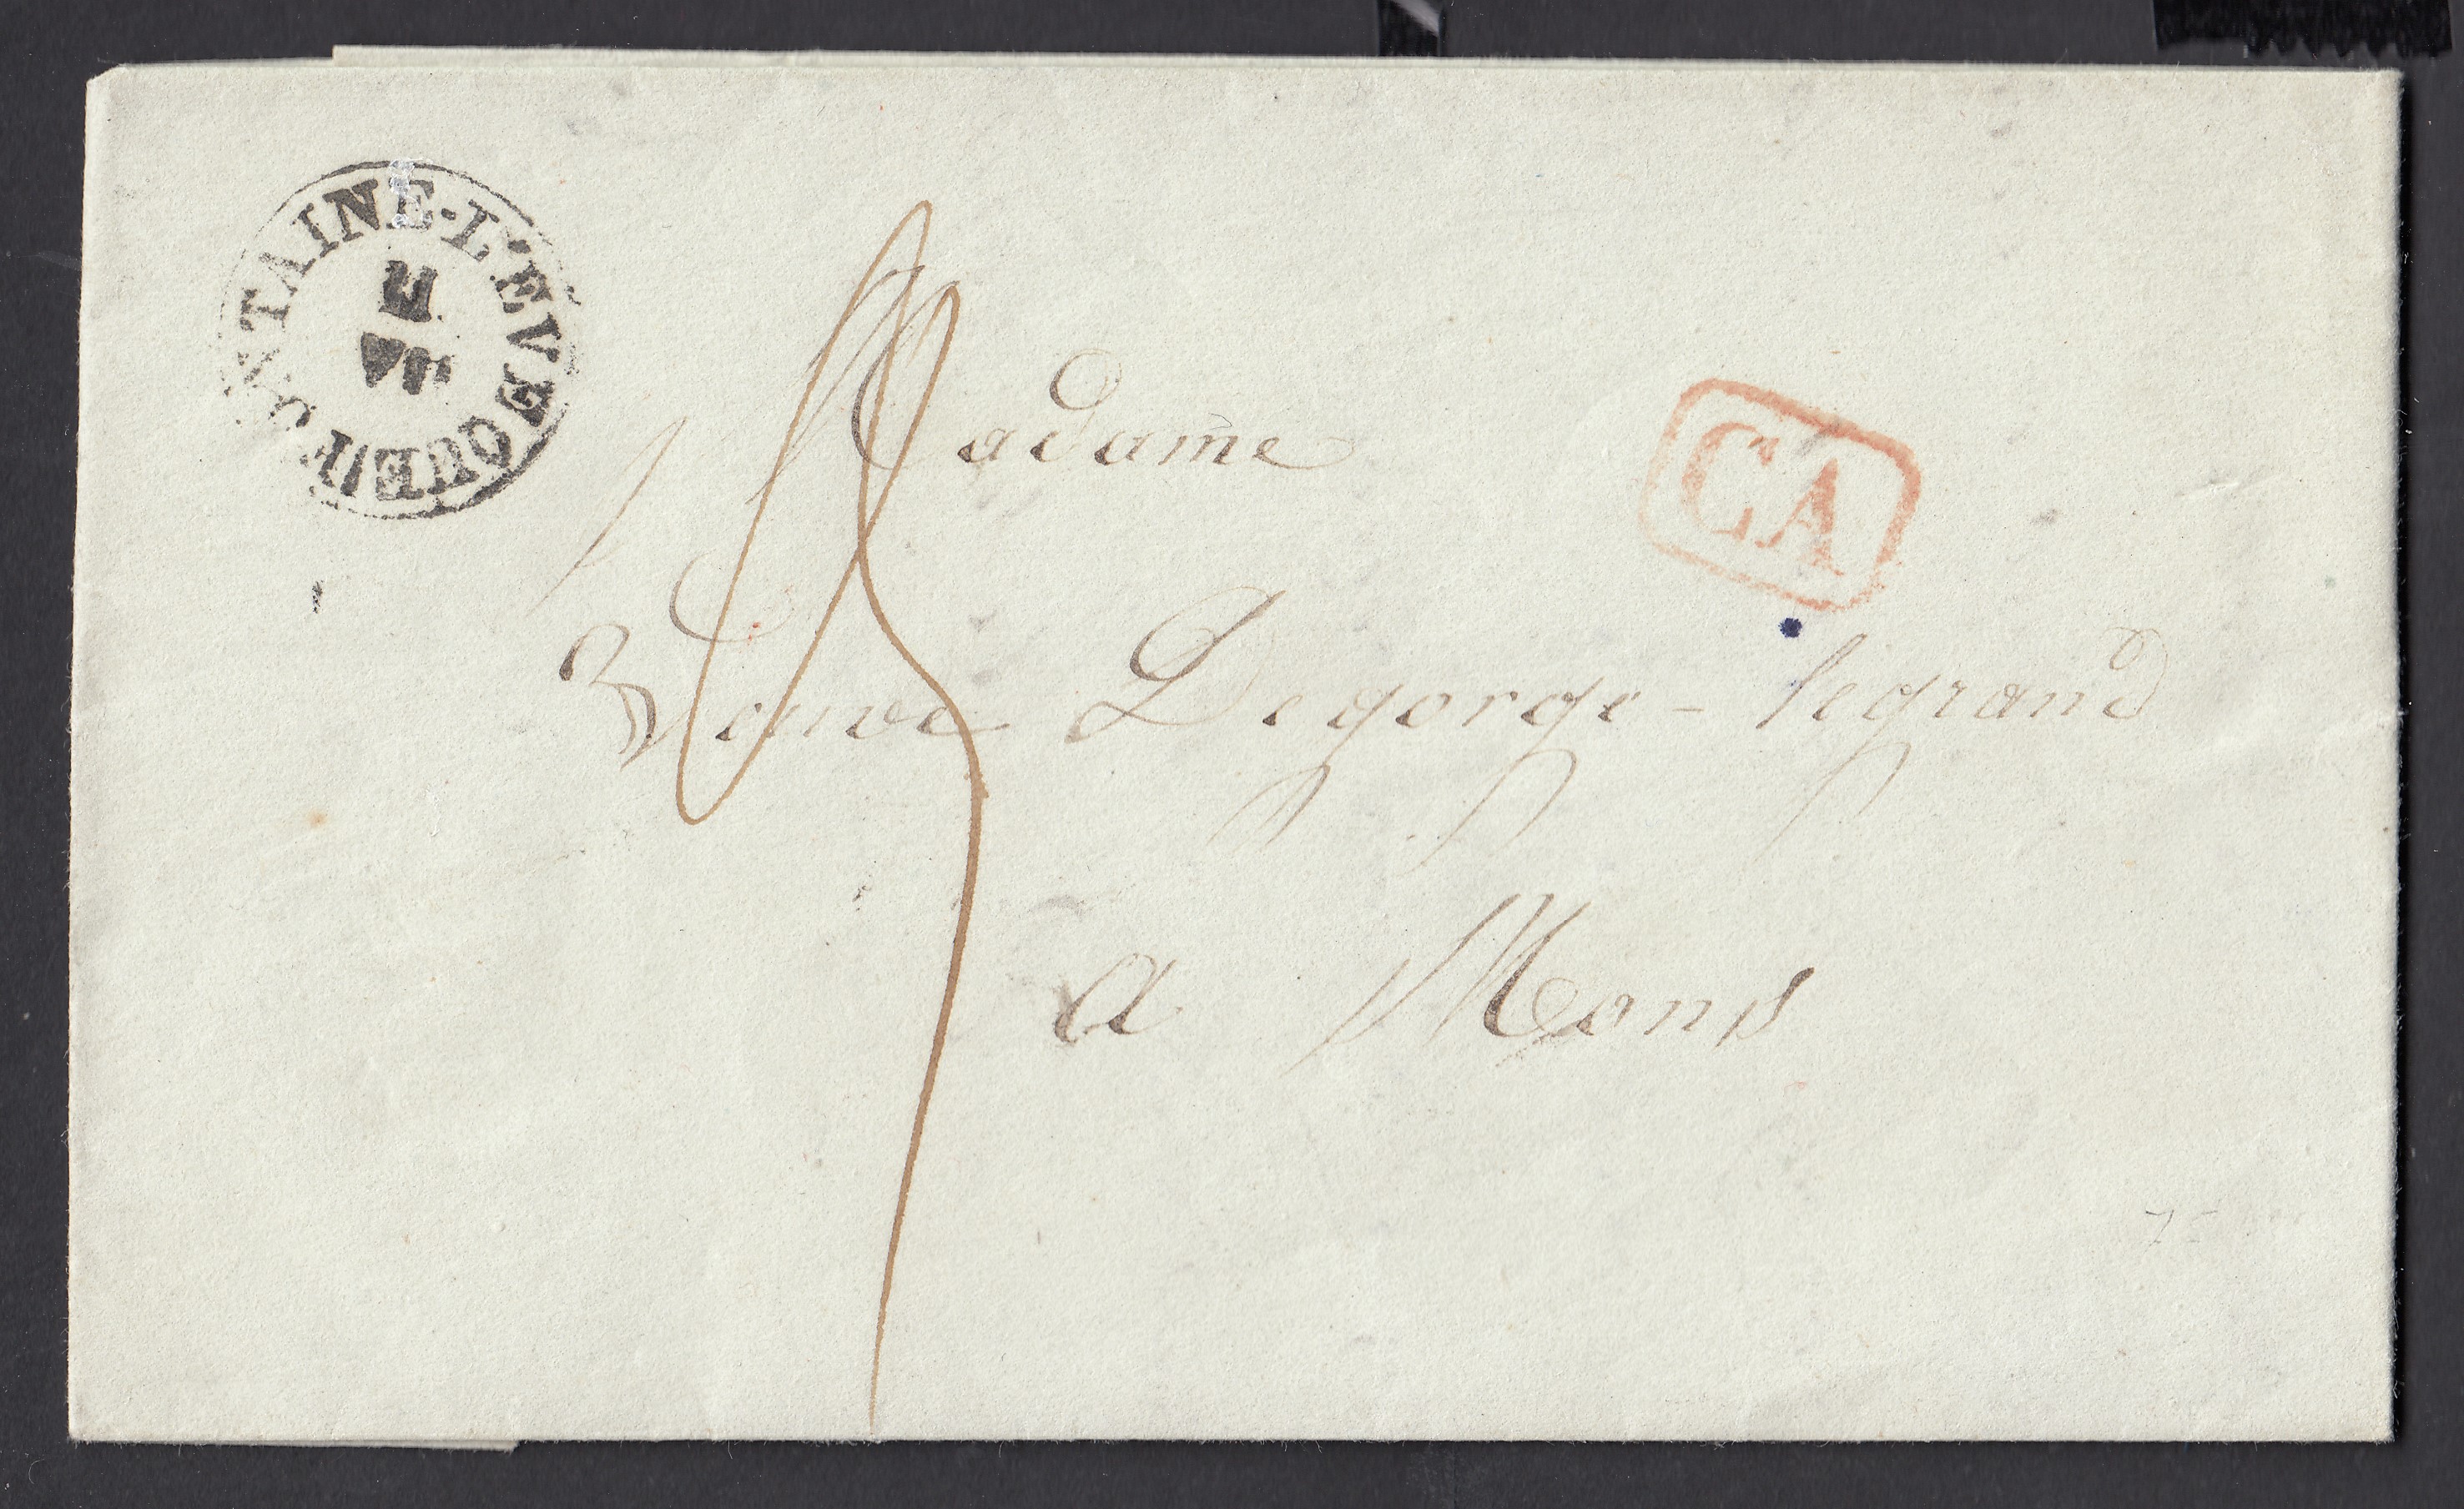 FONTAINE-L'EVEQUE
CA
Madame
Veuve Degorge - legrand
A Mons